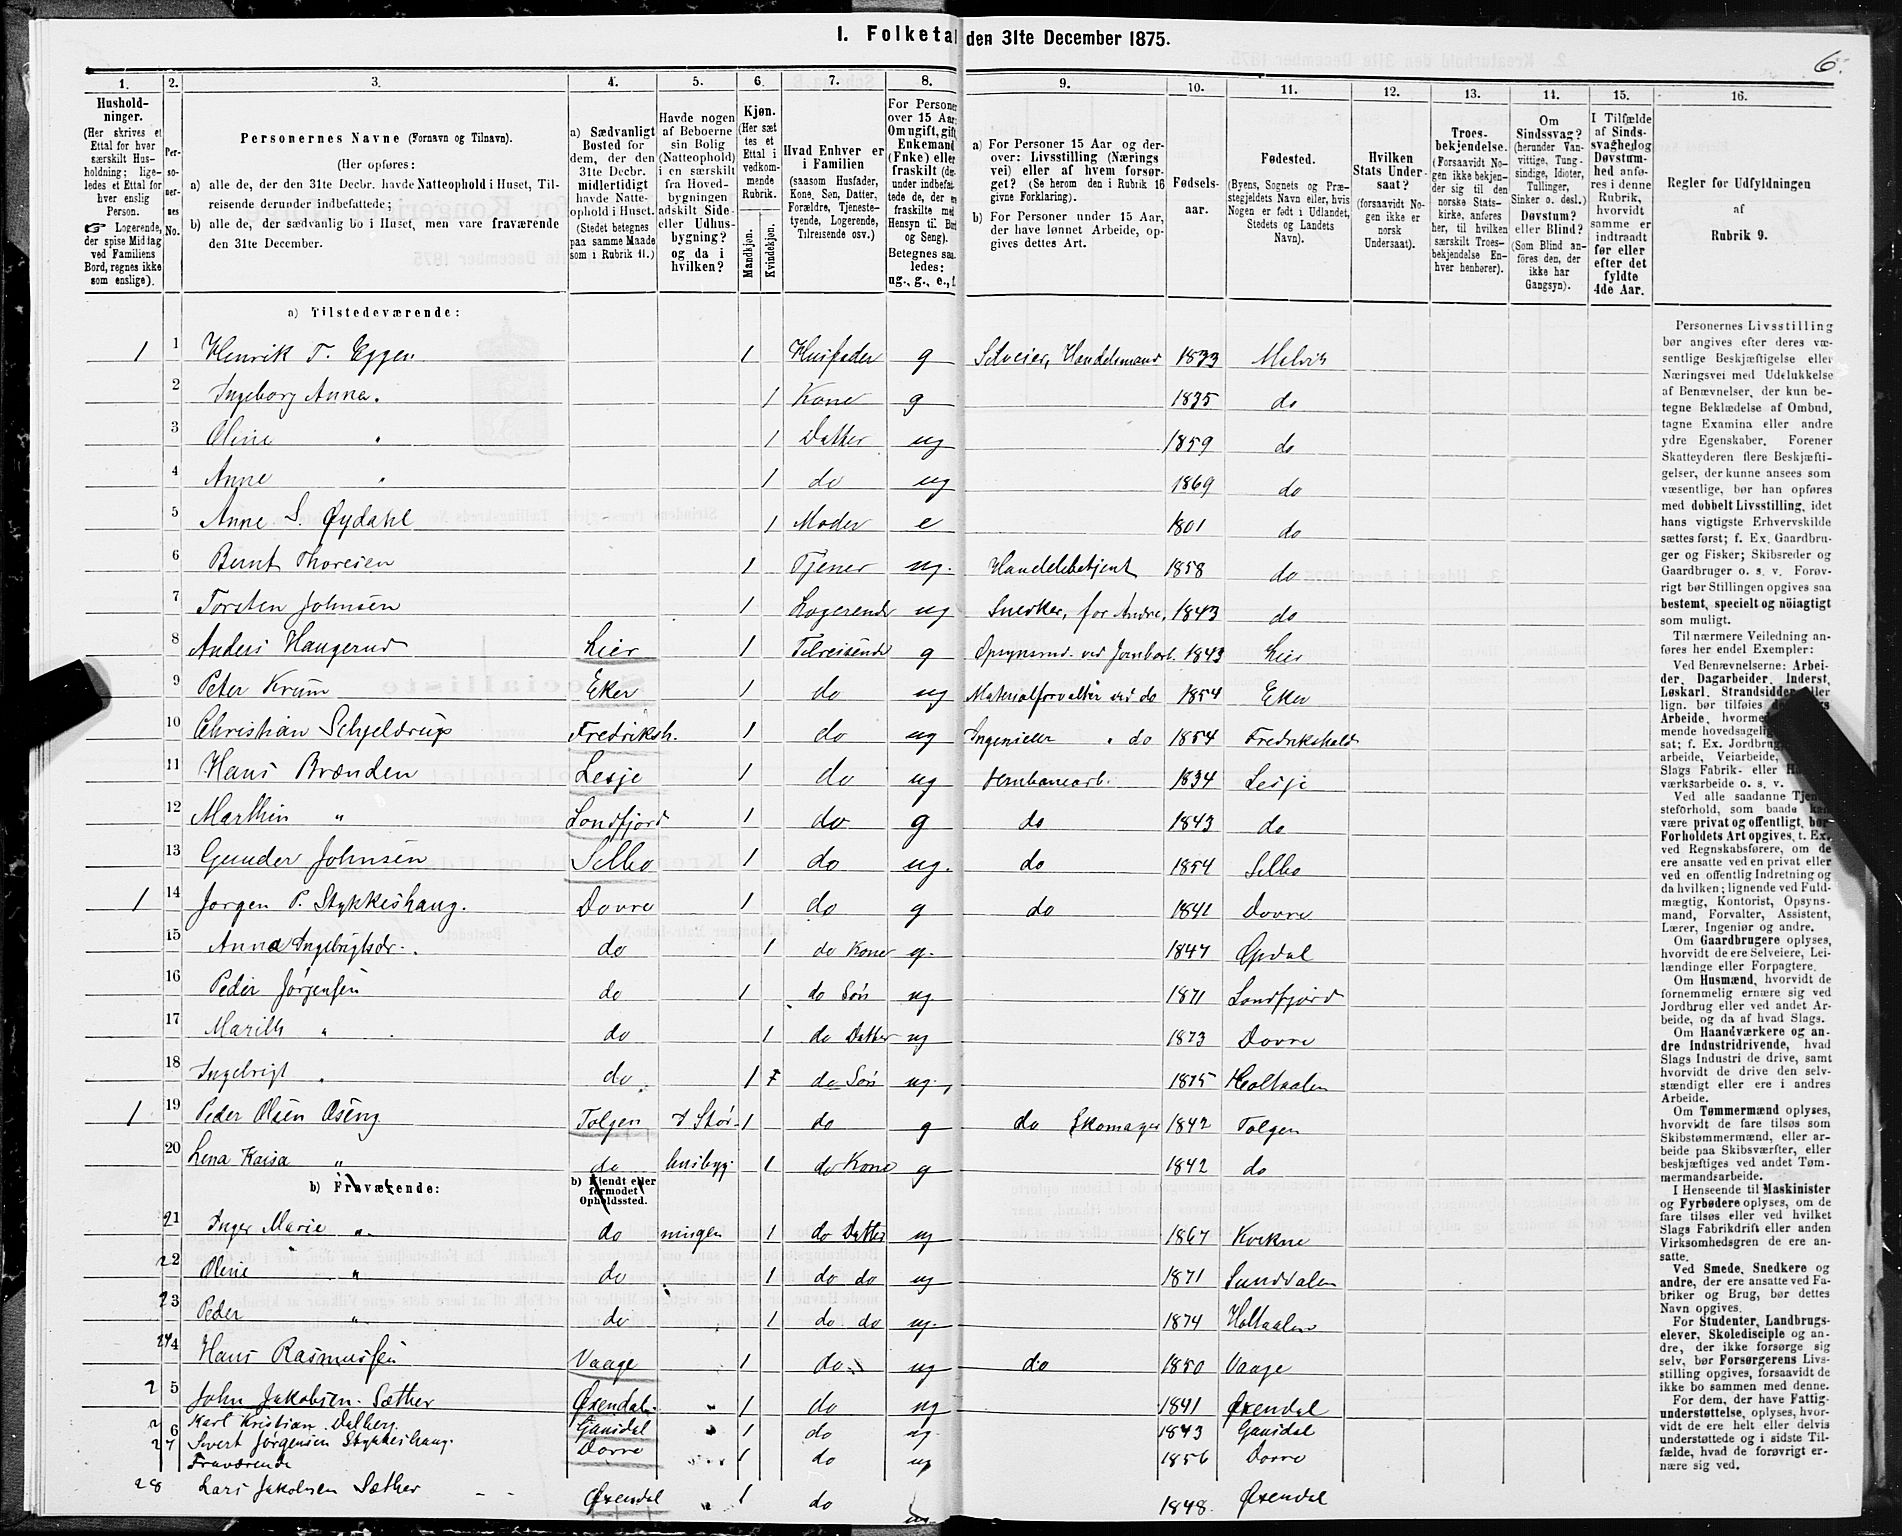 I. Folketal den 31te December 1875.
6.
1. 2. 3. 4. 5. 6. 7. 8. 9. 10. 11. 12. 13. 14. 15. 16.
Hushold-
ninger.
(Her skrives et
Ettal for hver
særskilt Hus-
holdning; lige-
ledes et Ettal for
hver enslig
Person.
☞ Logerende,
der spise Middag
ved Familiens
Bord, regnes ikke
som enslige).
Per-
so-
ner-
nes
No.
Personernes Navne (Fornavn og Tilnavn).
(Her opføres:
a) alle de, der den 31te Decbr. havde Natteophold i Huset, Til-
reisende derunder indbefattede;
b) alle de, der sædvanlig bo i Huset, men vare fraværende
den 31te December.
a) Sædvanligt
Bosted for
dem, der den
31te Decbr.
midlertidigt
havde Natte-
ophold i Huset.
(Stedet betegnes
paa samme Maade
som i Rubrik 11.)
Havde nogen
af Beboerne
sin Bolig
(Natteophold)
i en særskilt
fra Hoved-
bygningen
adskilt Side-
eller Udhus-
bygning?
og da i
hvilken?
Kjøn.
(Her sæt-
tes et
Ettal i
vedkom-
mende
Rubrik.
Mandkjøn.
Kvindekjøn.
Hvad Enhver er
i Familien
(saasom Husfader,
Kone, Søn, Datter,
Forældre, Tjeneste-
tyende, Logerende,
Tilreisende osv.)
For Personer
over 15 Aar:
Om ugift, gift,
Enkemand
(Enke) eller
fraskilt
Betegnes saa-
ledes:
ug., g., e., f.
a) For Personer 15 Aar og der-
over: Livsstilling (Nærings
vei) eller af hvem forsør-
get? (Se herom den i Rubrik 16
givne Forklaring).
b) For Personer under 15 Aar,
der have lønnet Arbeide, op-
gives dettes Art.
Fødsels-
aar.
Fødested.
(Byens, Sognets og Præ-
stegjeldets Navn eller, hvis
Nogen er født i Udlandet,
Stedets og Landets
Navn).
Hvilken
Stats Under-
saat?
(forsaavidt No-
gen ikke er
norsk
Undersaat).
Troes-
bekjendelse.
(Forsaavidt No-
gen ikke bekjen-
der sig til den
norske Stats-
kirke, anføres
her, til hvilken
særskilt Troes-
bekjendelse En-
hver henhører).
Om
Sindssvag?
(herunder Van-
vittige, Tung-
sindige, Idioter,
Tullinger,
Sinker o. desl.)
Døvstum?
eller Blind?
(Som Blind an-
føres den, der
ikke har
Gangsyn).
I Tilfælde
af Sinds-
svaghed og
Døvstum-
hed anfø-
res i denne
Rubrik,
hvorvidt
samme er
indtraadt
før eller
efter det
fyldte
4de Aar.
Regler for Udfyldningen
af
Rubrik 9.
a) Tilstedeværende:
1 1 Henrik T. Eggen 1 Husfader g Selveier, Handelsmand 1833 Malvik
2 Ingeborg Anna 1 Kone g 1835 do
3 Oline " 1 Datter ug 1859 do
4 Anne " 1 do ug 1869 do
5 Anne S. Øydahl 1 Moder e 1801 do
6 Bernt Thoresen 1 Tjener ug. Handelsbetjent 1858 do
7 Torsten Johnsen 1 Logerende ug Snedker, for Andre, 1843 do
8 Anders Haugerud Lier 1 Tilreisende g Opsynsmd. ved Jernbarb. 1843 Lier
9 Peter Krum Eker 1 do ug Materialforvalter ved do 1854 Eker
10 Christian Schjeldrup Fredriksh. 1 do ug Ingeniør " do 1854 Fredrikshald
11 Hans Brænden Lesje 1 do ug Jernbanearb. 1834 Lesje
12 Marthin " Sondfjord 1 do g do 1843 do
13 Gunder Johnsen Selbo 1 do ug. do 1854 Selbo
1 14 Jørgen P. Stykkishaug. Dovre 1 do g do 1841 Dovre
15 Anna Ingebrigtsdr. do 1 do Kone g. 1847 Opdal
16 Peder Jørgensen do 1 do Søn ug 1871 Sondfjord
17 Marith " do 1 do Datter ug 1873 Dovre
18 Ingebrigt " do 1 do Søn ug. 1875 Holtaalen
1 19 Peder Olsen Oseng Tolgen I Stør- 1 do g do Skomager 1842 Tolgen
20 Lena Kaisa " do husbyg- 1 do Kone g 1842 do
b) Fraværende: b) Kjendt eller
formodet
Opholdssted.
21 Inger Marie " do ningen 1 do Datter ug 1867 Kvikne
22 Oline " do 1 do do ug 1871 Sunddalen
23 Peder " do 1 do do ug. 1874 Holtaalen
24 Hans Rasmussen Vaage " 1 do ug do 1850 Vaage
25 John Jakobsen Sæther Øxendal " 1 do ug 1841 Øxendal
26 Karl Kristian Dalberg Gausdal " 1 do ug. 1843 Gausdal
27 Sivert Jørgensen Stykkishaug. Dovre " 1 do ug 1856 Dovre
Fraværende
28 Lars Jakobsen Sæther Øxendal " 1 do ug. 1848. Øxendal
Personernes Livsstilling
bør angives efter deres væ-
sentlige Beskjæftigelse eller
Næringsvei med Udelukkelse
af Benævnelser, der kun be-
tegne Beklædelse af Ombud,
tagne Examina eller andre
ydre Egenskaber. Forener
Skatteyderen flere Beskjæfti-
gelser, der kunne ansees som
væsentlige, bør han opføres
med dobbelt Livsstilling, idet
hans vigtigste Erhvervskilde
sættes først; f. Ex. Gaardbru-
ger og Fisker; Skibsreder og
Gaardbruger o. s. v. Forøv-
rigt bør Stillingen opgives saa
bestemt, specielt og nöiagtigt
som muligt.
Til nærmere Veiledning an-
føres her endel Exempler:
Ved Benævnelserne: Arbei-
der, Dagarbeider, Inderst,
Løskarl, Strandsidder eller
lign. bør tilføies
Arbeide, hvorme
mende hovedsagelig
sat; f. Ex. Jordbrug
arbeide, Veiarbeide,
Slags Fabrik- eller
værksarbeide o. s. v.
Ved alle saadanne Tjene-
steforhold, som baade kan
være privat og offentligt, bør
Forholdets Art opgives, t. Ex.
ved Regnskabsførere, om de
ere ansatte ved en privat eller
ved en offentlig Indretning og
da hvilken; lignende ved Fuld-
mægtig, Kontorist, Opsyns-
mand, Forvalter, Assistent,
Lærer, Ingeniør og andre.
Om Gaardbrugere oplyses,
hvorvidt de ere Selveiere, Lei-
lændinge eller Forpagtere.
Om Husmænd, hvorvidt de
fornemmelig ernære sig ved
Jordbrug eller ved andet Ar-
beide, og da af hvad Slags.
Om Haandværkere og an-
dre Industridrivende, hvad
Slags Industri de drive, samt
hvorvidt de drive den selv-
stændigt eller ere i andres
Arbeide.
Om Tømmermænd oplyses,
hvorvidt de fare tilsøs som
Skibstømmermænd, eller ar-
beide paa Skibsværfter, eller
beskjæftiges ved andet Tøm-
mermandsarbeide.
I Henseende til Maskinister
og Fyrbødere oplyses, om de
fare tilsøs eller ved hvilket
Slags Fabrikdrift eller anden
Virksomhedsgren de ere an-
satte.
Ved Smede, Snedkere og
andre, der ere ansatte ved Fa-
briker og Brug, bør dettes
Navn opgives.
For Studenter, Landbrugs-
elever, Skoledisciple og an-
dre, der ikke forsørge sig
selv, bør Forsørgerens Livs-
stilling opgives, forsaavidt de
ikke bo sammen med denne.
For dem, der have Fattig-
understøttelse, oplyses, hvor-
vidt de ere helt eller delvis
understøttede og i sidste Til-
fælde, hvad de forøvrigt er-
nære sig ved.